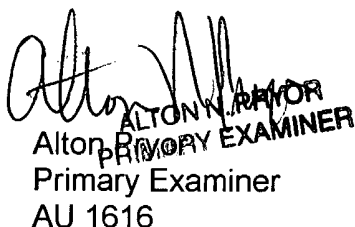 Alton N. Pryor
ALTON N. PRYOR
PRIMARY EXAMINER
Alton Pryor
Primary Examiner
AU 1616